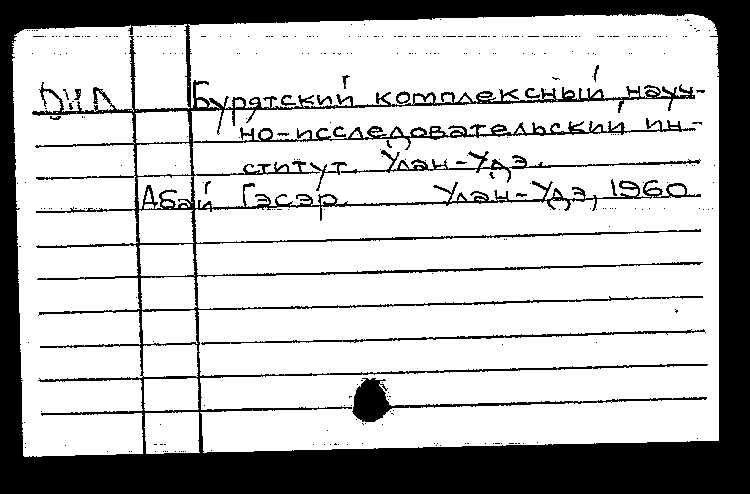 ДИА Бурятский комплексный науч-
но-исследовательский ин-
ститут. Улан-Удэ.
Абай Гэсэр. Улан-Удэ, 1960